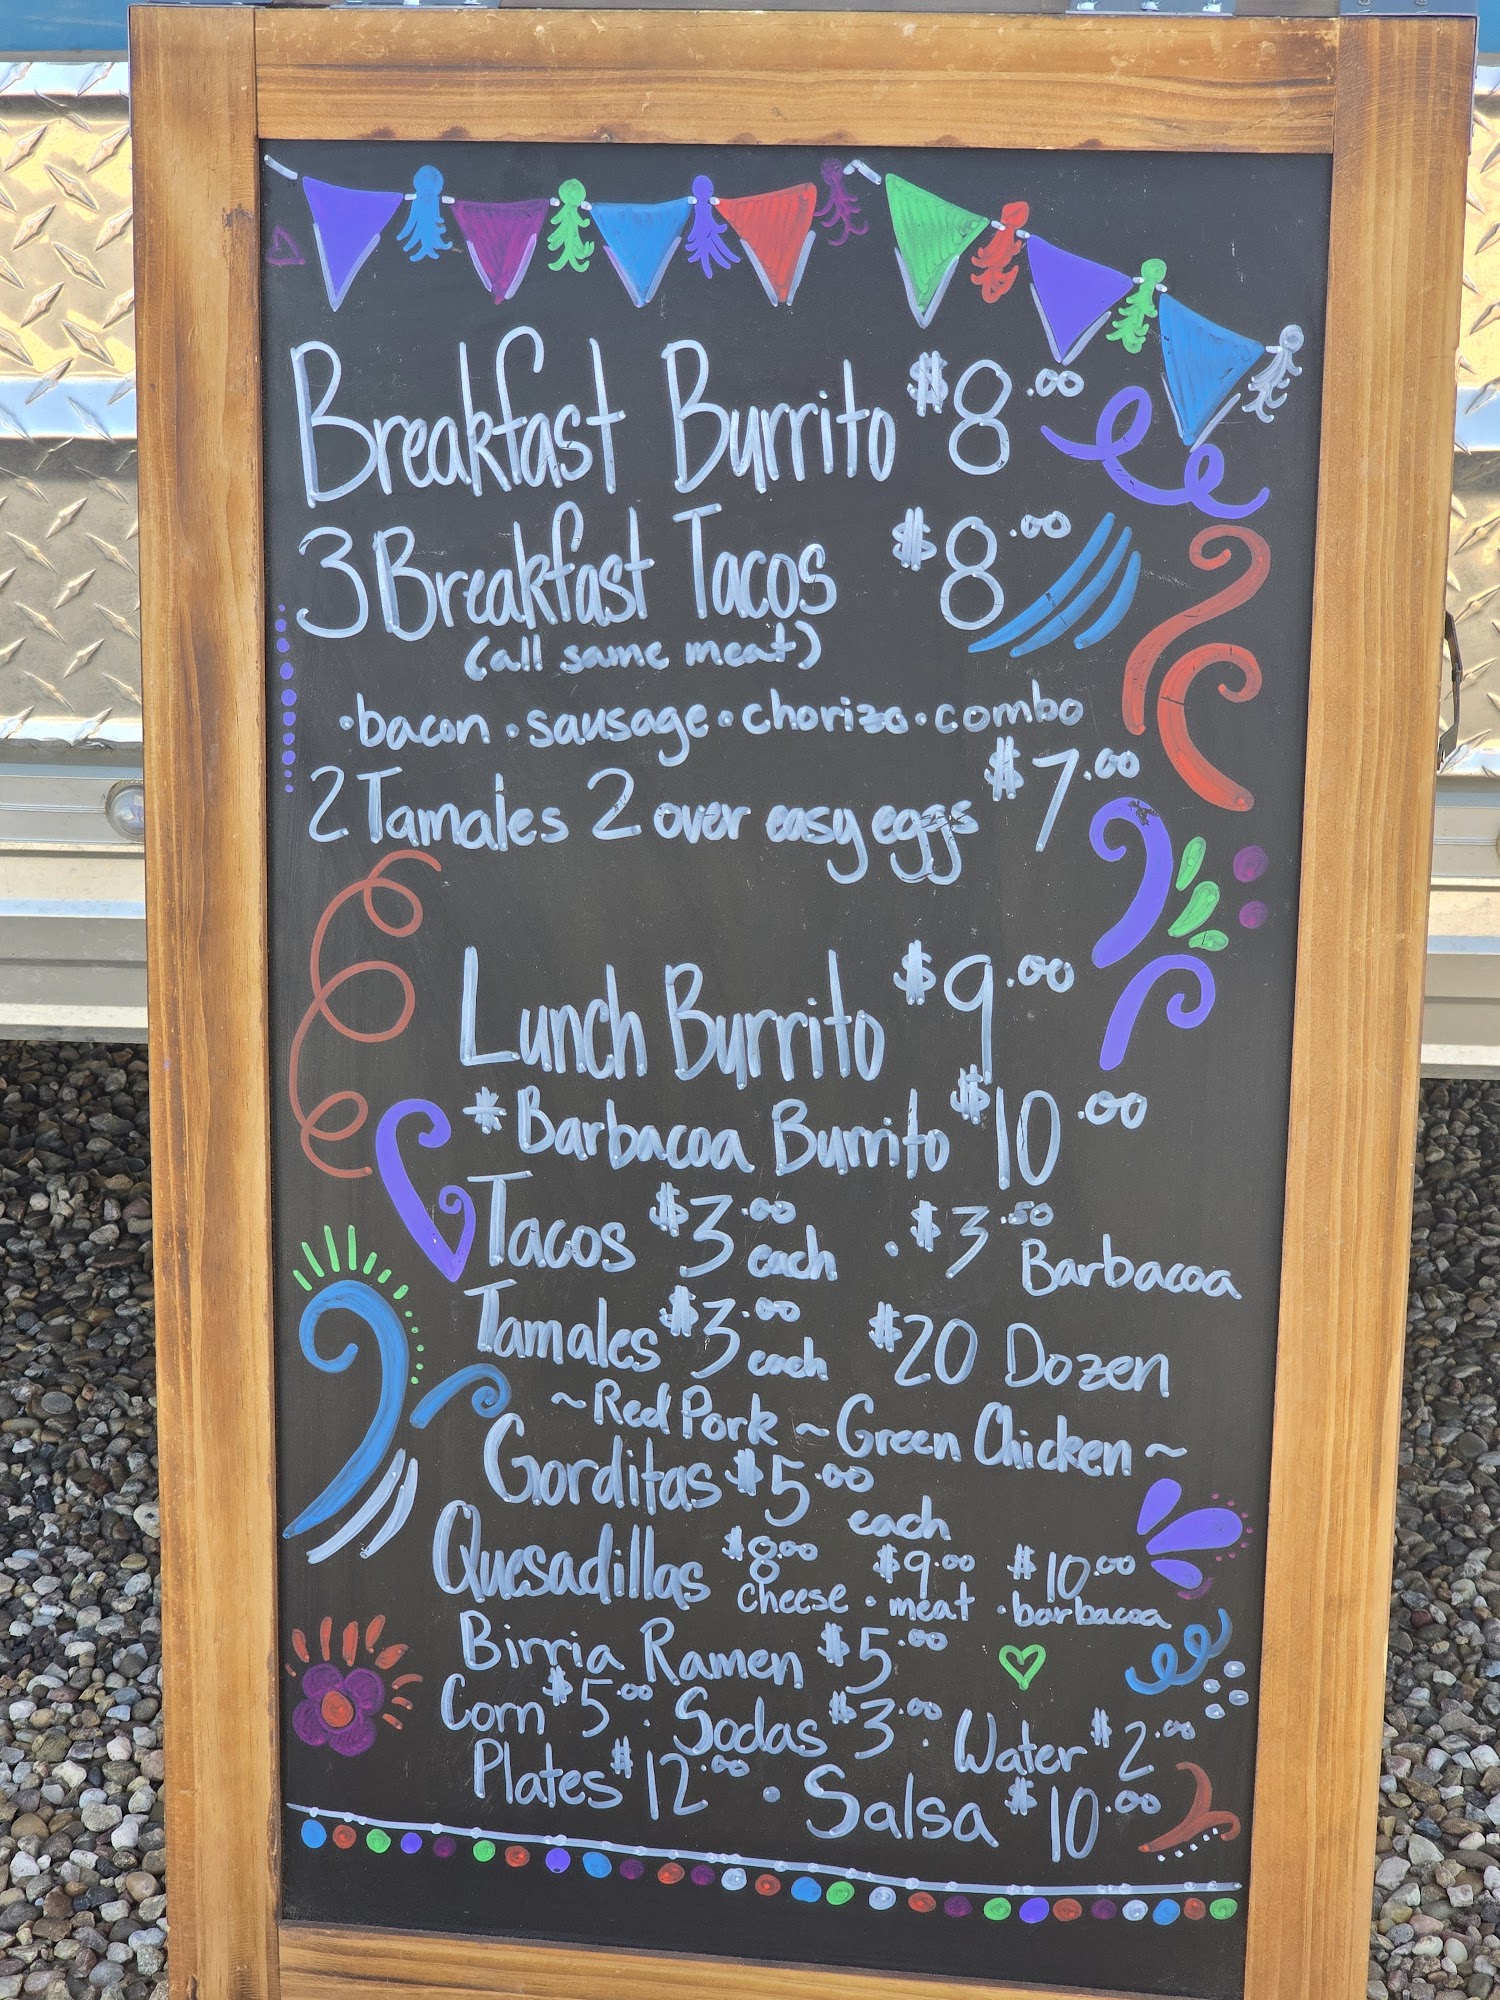 Breakfast Burrito $8.00
3 Breakfast Tacos $8.00
(all same meat)
•bacon •sausage •chorizo •combo
2 Tamales 2 over easy eggs $7.00
Lunch Burrito $9.00
*Barbacoa Burrito $10.00
Tacos $3.00 each • $3.50 Barbacoa
Tamales $3.00 each $20 Dozen
~Red Pork ~Green Chicken~
Gorditas $5.00 each
Quesadillas $8.00 cheese • $9.00 meat • $10.00 barbacoa
Birria Ramen $5.00
Corn $5.00 • Sodas $3.00 • Water $2.00
Plates $12.00 • Salsa $10.00